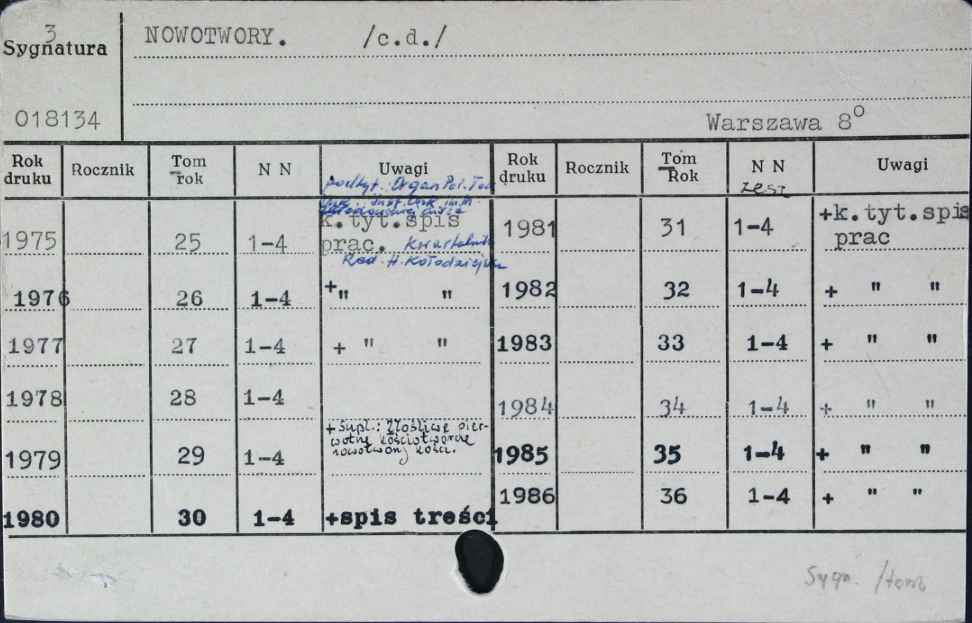 3
Sygnatura
NOWOTWORY. /c.d./
018134
Warszawa 8°
Rok druku Rocznik Tom rok N N Uwagi Rok druku Rocznik Tom Rok N N zesz Uwagi
podtyt.: Organ Pol. Tow.
Onk. Inst. Onk. im. M.
1975 25 1-4 k.tyt.spis prac. kwartalnik 1981 31 1-4 +k.tyt.spis prac
Red. H. Kołodziejska
1976 26 1-4 + " " 1982 32 1-4 + " "
1977 27 1-4 + " " 1983 33 1-4 + " "
1978 28 1-4 1984 34 1-4 + " "
+ Supl.: Złośliwe pier-
wotne kościotwórcze
nowotwory kości.
1979 29 1-4 1985 35 1-4 + " "
1980 30 1-4 +spis treści 1986 36 1-4 + " "
Sygn. /tom